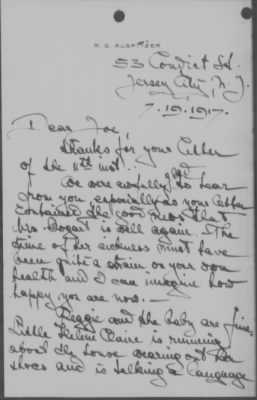 R. G. AUSPITZER
53 Condict St.
Jersey City, N. J.
7.19.1917.
Dear Joe,
Thanks for your letter
of the 11th inst.
We were awfully glad to hear
from you, especially as your letter
contained the good news that
Mrs. Bogart is well again. The
time of her sickness must have
been quite a strain on your own
health and I can imagine how
happy you are now. —
Peggie and the baby are fine.
Little Helene Claire is running
about the house wearing out her
shoes and is talking a language